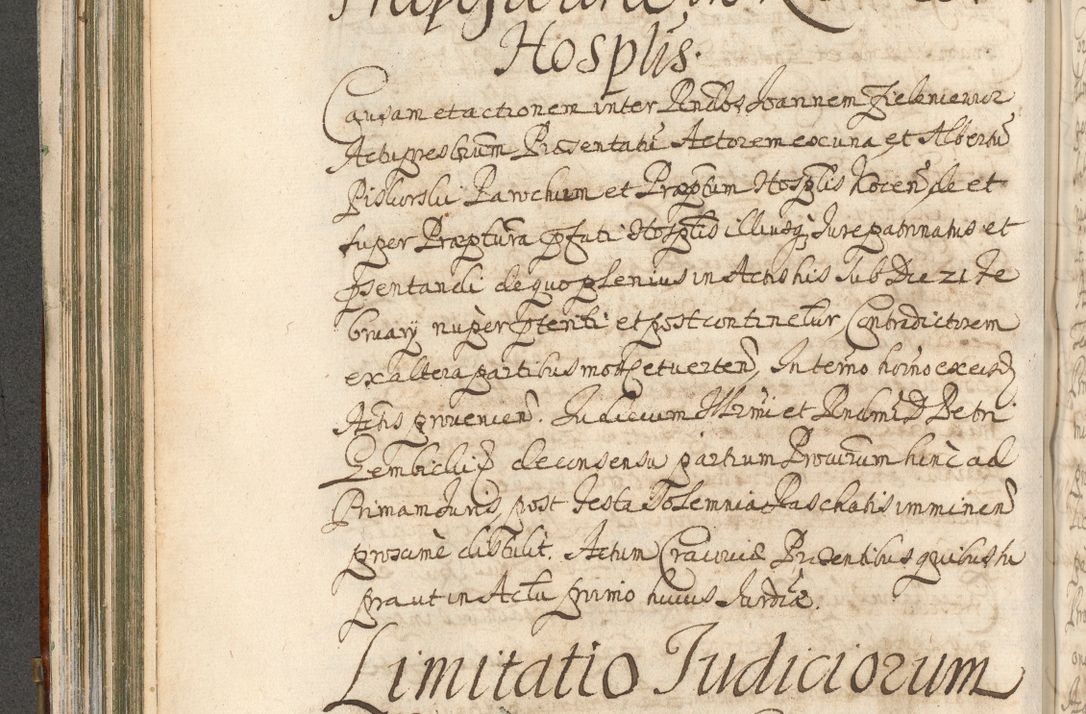 Hosplis.
Causam et actionem inter Rndos Joannem Zieleniewicz
Actu presbrum Præsentatu Actorem ex una et Albertu
Pisliorski Parochum et Præptum Hosplis Kocen de et
super Præptura pfati Hosplis illiusq Jurepatrinatus et
psentandi de quo plenius in Actis his sub Die 21 Fe
bruary nuper pteriti et post continetur Contradictorem
ex altera partibus mot et verten, In termo horno ex eisd
Actis provenien. Judicium Illrmi et Rndmi D Petri
Gembicki de consensu partium Procurum hinc ad
Primam Jurid post Festa Solemnia Paschatis imminen
proxime distulit. Actum Cracoviæ Præsentibus quibus su
pra ut in Actu primo huius Jurdicæ.
Limitatio Judiciorum